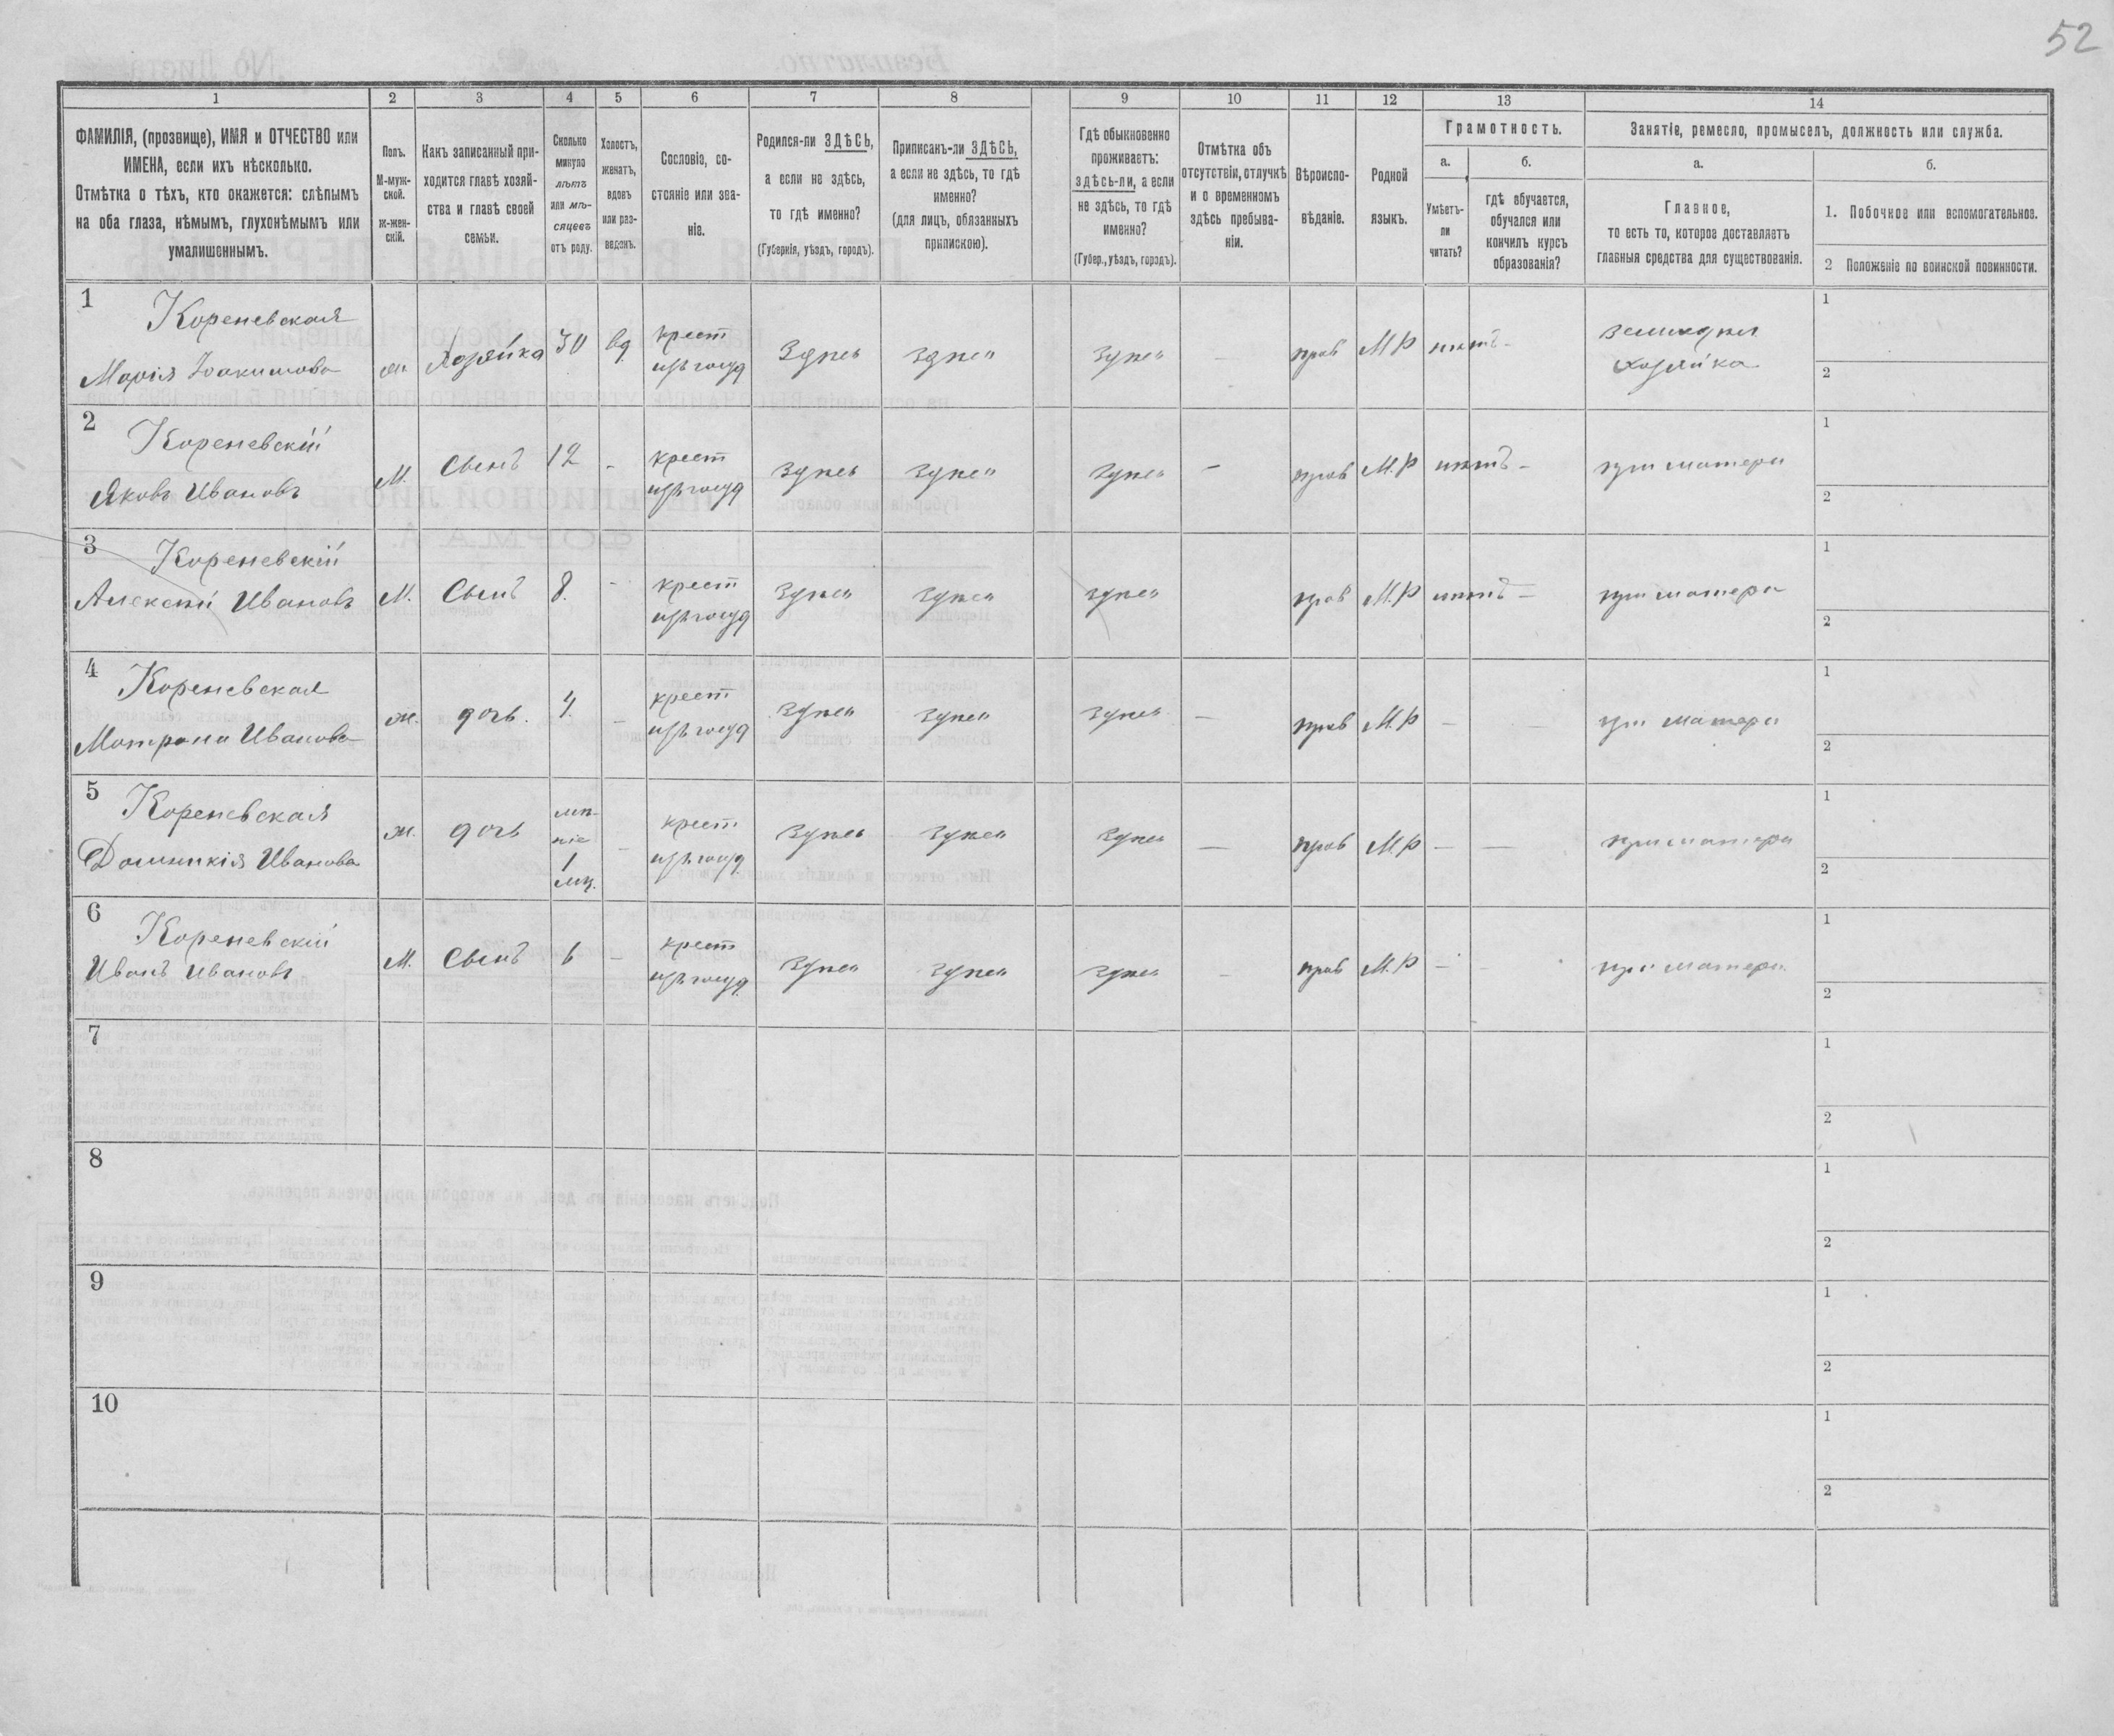 52
1 2 3 4 5 6 7 8 9 10 11 12 13 14
ФАМИЛІЯ, (прозвище), ИМЯ и ОТЧЕСТВО или
ИМЕНА, если ихъ нѣсколько.
Отмѣтка о тѣхъ, кто окажется: слѣпымъ
на оба глаза, нѣмымъ, глухонѣмымъ или
умалишеннымъ.
Полъ.
М-муж-
ской.
ж-жен-
скій.
Какъ записанный при-
ходится главѣ хозяй-
ства и главѣ своей
семьи.
Сколько
минуло
лѣтъ
или мѣ-
сяцевъ
отъ роду.
Холостъ,
женатъ,
вдовъ
или раз-
веденъ.
Сословіе, со-
стояніе или зва-
ніе.
Родился-ли ЗДѢСЬ,
а если не здѣсь,
то гдѣ именно?
(Губернія, уѣздъ, городъ).
Приписанъ-ли ЗДѢСЬ,
а если не здѣсь, то гдѣ
именно?
(для лицъ, обязанныхъ
припискою).
Гдѣ обыкновенно
проживаетъ:
здѣсь-ли, а если
не здѣсь, то гдѣ
именно?
(Губер., уѣздъ, городъ).
Отмѣтка объ
отсутствіи, отлучкѣ
и о временномъ
здѣсь пребыва-
ніи.
Вѣроиспо-
вѣданіе.
Родной
языкъ.
Грамотность.
а.
б.
Умѣетъ-
ли
читать?
гдѣ обучается,
обучался или
кончилъ курсъ
образованія?
Занятіе, ремесло, промыселъ, должность или служба.
а.
б.
Главное,
то есть то, которое доставляетъ
главныя средства для существованія.
1. Побочное или вспомогательное.
2 Положеніе по воинской повинности.
1 Кореневская
Марія Іоакимова ж. Хозяйка 30 вд крест изъ госуд Здѣсь здѣсь здѣсь — прав М Р нѣтъ - хозяйка
1
2
2 Кореневскій
Яковъ Ивановъ М. Сынъ 12 - крест изъ госуд здѣсь здѣсь здѣсь — прав М.Р нѣтъ - при матери
1
2
3 Кореневскій
Алексѣй Ивановъ М. Сынъ 8. - крест изъ госуд здѣсь здѣсь здѣсь прав М.Р нѣтъ — при матери
1
2
4 Кореневская
Матрона Иванова ж. дочь. 4. - крест изъ госуд здѣсь здѣсь здѣсь — прав М.Р - — при матери
1
2
5 Кореневская
Домникія Иванова ж. дочь 1 мц. - крест изъ госуд здѣсь здѣсь здѣсь — прав М.Р — — при матери
1
2
6 Кореневскій
Иванъ Ивановъ М. Сынъ 6 - крест изъ госуд здѣсь здѣсь здѣсь - прав М.Р - - при матери.
1
2
7
1
2
8
1
2
9
1
2
10
1
2